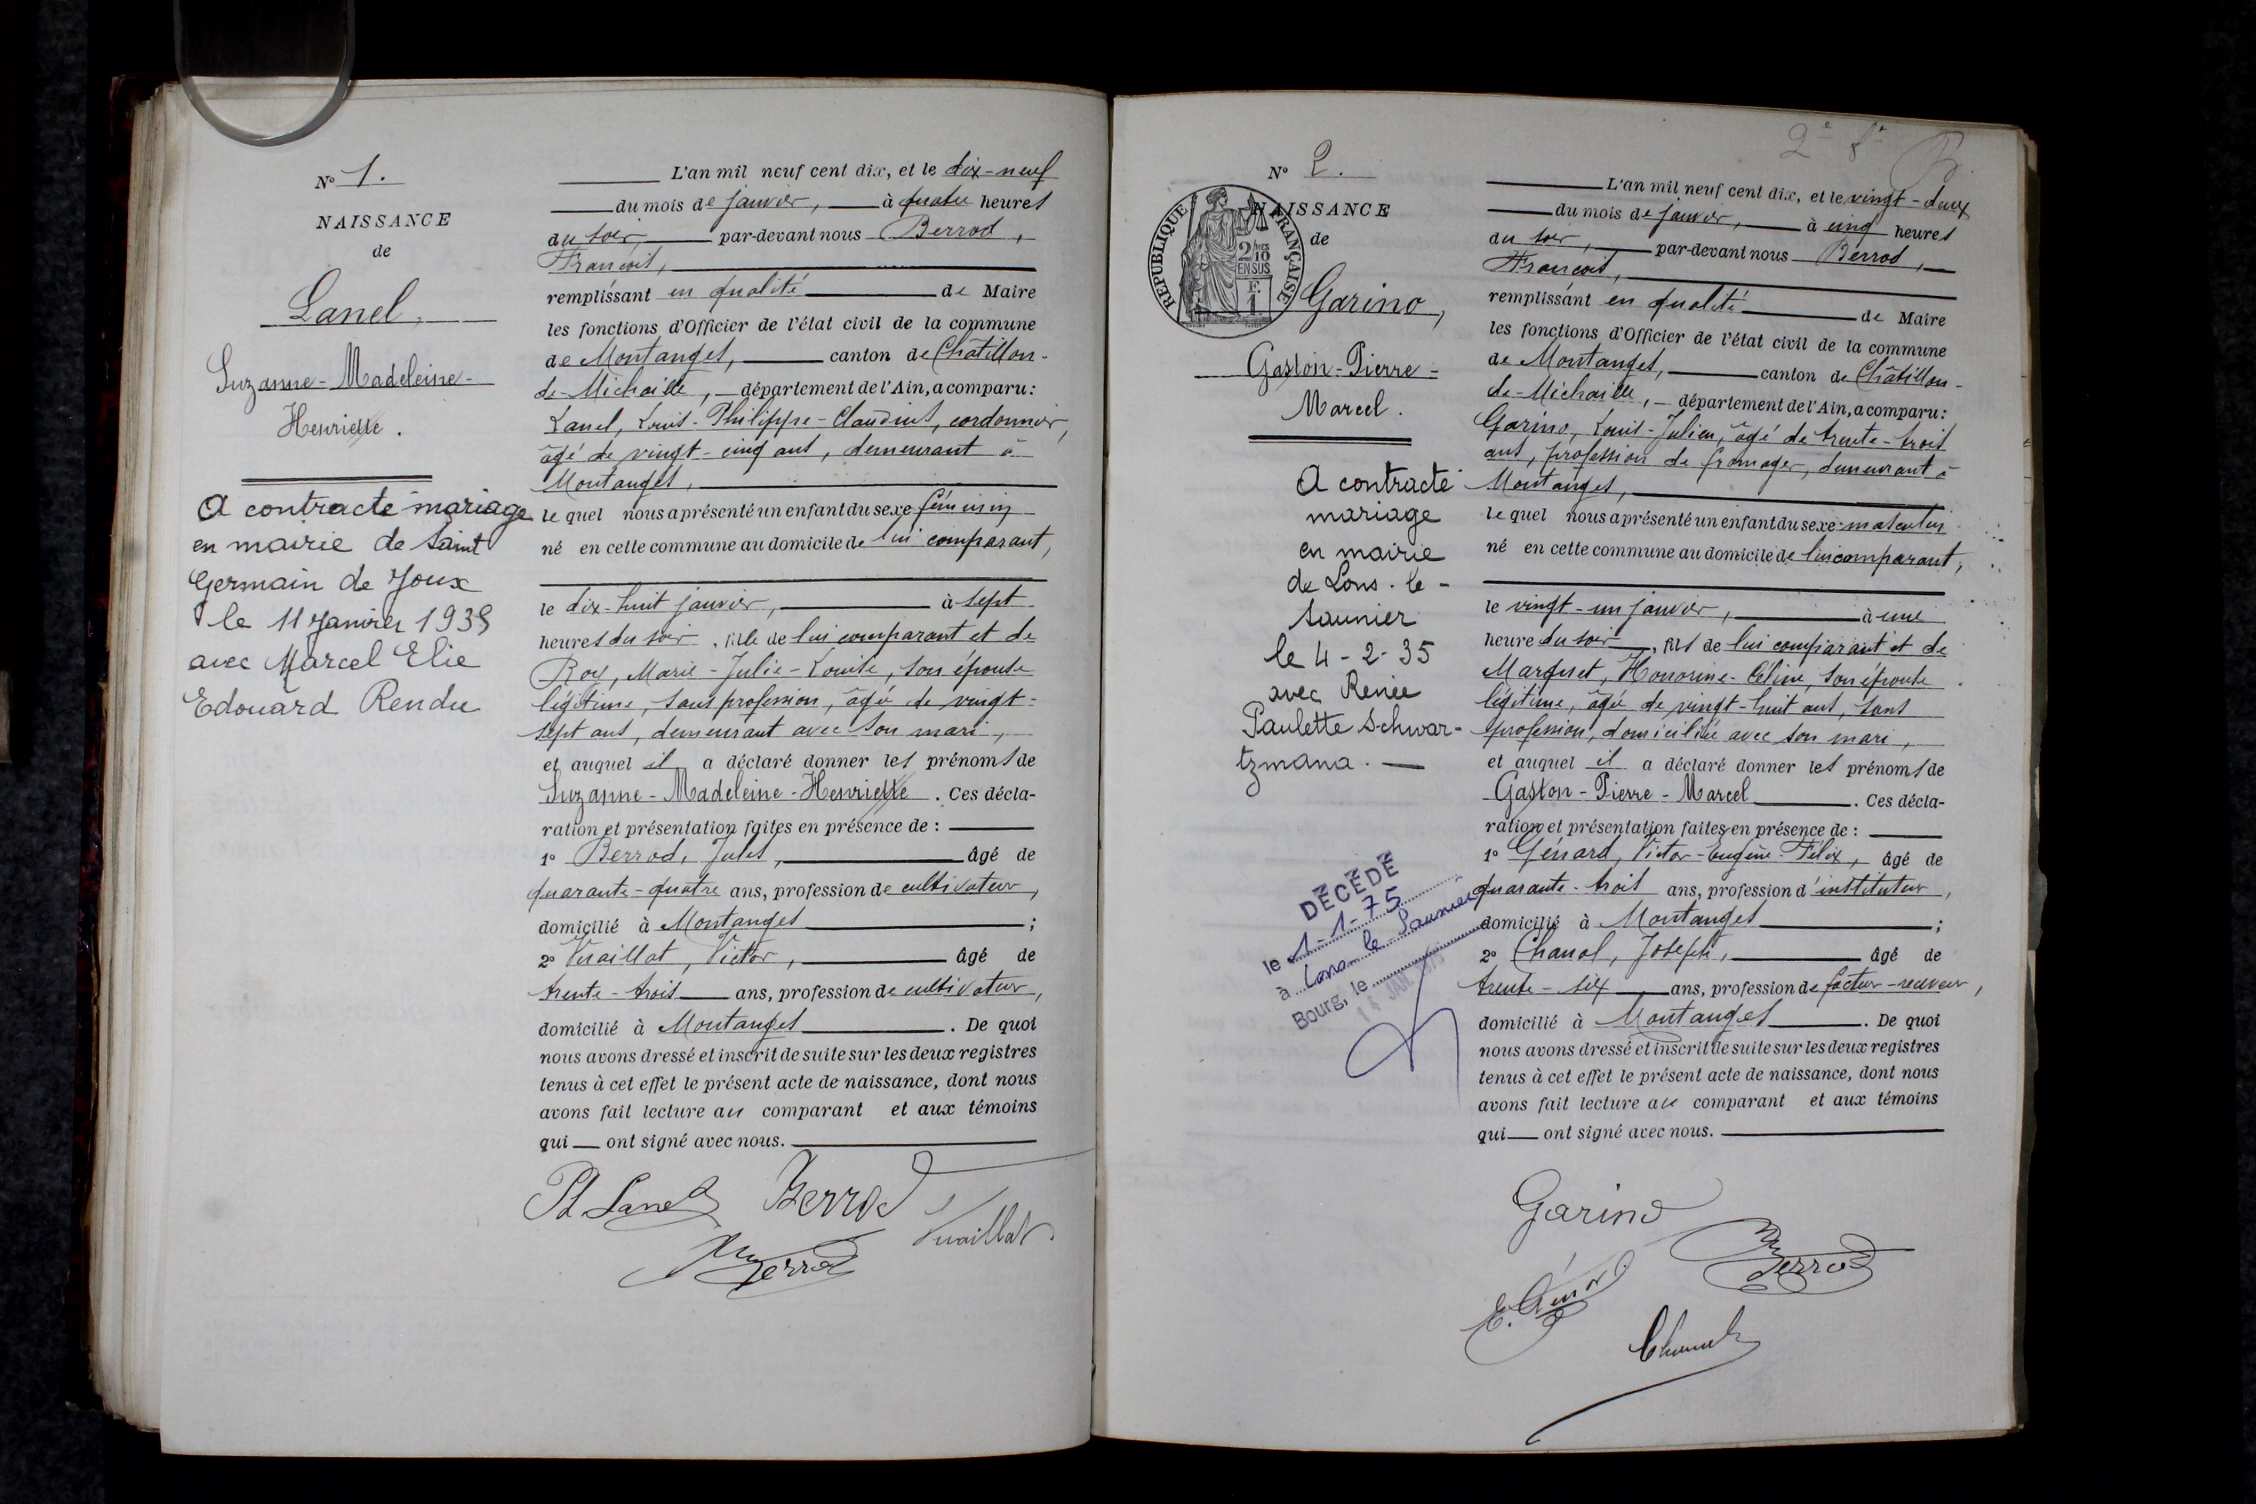 N° 1.
NAISSANCE
de
Lanel,
Suzanne-Madeleine-
Henriette.
A contracté mariage
en mairie de Saint
Germain de Joux
le 11 Janvier 1935
avec Marcel Elie
Edouard Rendu
L'an mil neuf cent dix, et le dix-neuf
du mois de janvier, à quatre heures
du soir, par-devant nous Berrod,
François,
remplissant en qualité de Maire
les fonctions d'Officier de l'état civil de la commune
de Montanges, canton de Châtillon-
de-Michaille, département de l'Ain, a comparu:
Lanel, Louis-Philippe-Claudius, cordonnier,
âgé de vingt-cinq ans, demeurant à
Montanges,
lequel nous a présenté un enfant du sexe féminin
né en cette commune au domicile de lui comparant,
le dix-huit janvier, à sept
heures du soir, fille de lui comparant et de
Roy, Marie-Julie-Louise, son épouse
légitime, sans profession, âgée de vingt-
sept ans, demeurant avec son mari,
et auquel il a déclaré donner les prénoms de
Suzanne-Madeleine-Henriette. Ces décla-
ration et présentation faites en présence de :
1° Berrod, Jules, âgé de
quarante-quatre ans, profession de cultivateur,
domicilié à Montanges ;
2° Vuaillat, Victor, âgé de
trente-trois ans, profession de cultivateur,
domicilié à Montanges. De quoi
nous avons dressé et inscrit de suite sur les deux registres
tenus à cet effet le présent acte de naissance, dont nous
avons fait lecture au comparant et aux témoins
qui ont signé avec nous.
Ph Lanel Berrod
Vuaillat
Berrod
2e f.
N° 2.
RÉPUBLIQUE FRANÇAISE
2/10 EN SUS
F. 1
NAISSANCE
de
Garino,
Gaston-Pierre-
Marcel.
A contracté
mariage
en mairie
de Lons-le-
Saunier
le 4-2-35
avec Renée
Paulette Schwar-
tzmana.
DÉCÉDÉ
le 1-1-75
à Lons le Saunier
Bourg, le
14 JAN 1975
L'an mil neuf cent dix, et le vingt-deux
du mois de janvier, à cinq heures
du soir, par-devant nous Berrod,
François,
remplissant en qualité de Maire
les fonctions d'Officier de l'état civil de la commune
de Montanges, canton de Châtillon-
de-Michaille, département de l'Ain, a comparu:
Garino, Louis-Julien, âgé de trente-trois
ans, profession de fromager, demeurant à
Montanges,
lequel nous a présenté un enfant du sexe masculin
né en cette commune au domicile de lui comparant,
le vingt-un janvier, à une
heure du soir, fils de lui comparant et de
Marquet, Honorine-Céline, son épouse
légitime, âgée de vingt-huit ans, sans
profession, domiciliée avec son mari,
et auquel il a déclaré donner les prénoms de
Gaston-Pierre-Marcel. Ces décla-
ration et présentation faites en présence de :
1° Génard, Victor-Eugène-Félix, âgé de
quarante-trois ans, profession d'instituteur,
domicilié à Montanges ;
2° Chanal, Joseph, âgé de
trente-six ans, profession de facteur-receveur,
domicilié à Montanges. De quoi
nous avons dressé et inscrit de suite sur les deux registres
tenus à cet effet le présent acte de naissance, dont nous
avons fait lecture au comparant et aux témoins
qui ont signé avec nous.
Garino
Berrod
E. Génard
Chanal